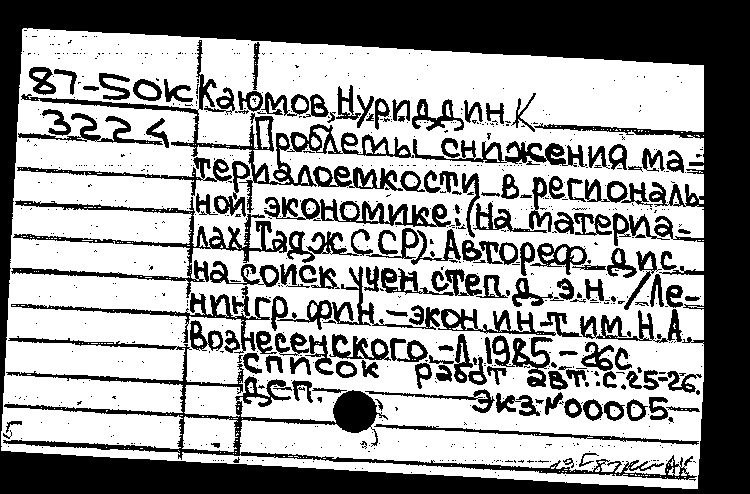 87-50к Каюмов, Нуриддин К
3224 Проблемы снижения ма-
териалоемкости в региональ-
ной экономике: (На материа-
лах ТаджССР): Автореф. дис.
на соиск. учен. степ. д. э. н. / Ле-
нингр. фин.-экон. ин-т им. Н. А.
Вознесенского. -Л., 1985. -26с.
Список работ авт.: с. 25-26.
ДСП. Экз. №00005.
5
АК